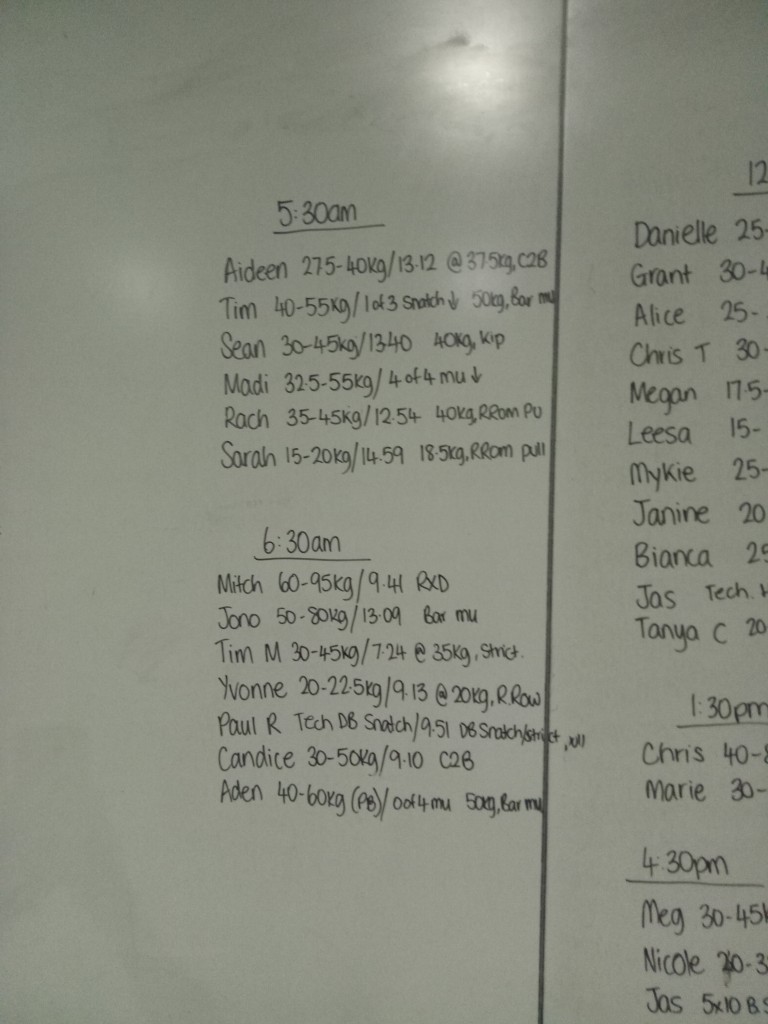 5:30am
Aideen 27.5-40kg/13.12 @ 37.5kg, C2B
Tim 40-55kg/1 of 3 Snatch ↓ 50kg, Bar mu
Sean 30-45kg/13.40 40kg, Kip
Madi 32.5-55kg/ 4 of 4 mu ↓
Rach 35-45kg/12.54 40kg, RRom PU
Sarah 15-20kg/14.59 18.5kg, RRom pull
6:30am
Mitch 60-95kg/9.41 RXD
Jono 50-80kg/13.09 Bar mu
Tim M 30-45kg/7.24 @ 35kg, Strict.
Yvonne 20-22.5kg/9.13 @ 20kg, R.Row
Paul R Tech DB Snatch/9.51 DB Snatch/strict, pull
Candice 30-50kg/9.10 C2B
Aden 40-60kg (PB)/0 of 4 mu 50kg, Bar mu
12
Danielle 25-
Grant 30-4
Alice 25-
Chris T 30-
Megan 17.5-
Leesa 15-
Mykie 25-
Janine 20
Bianca 25
Jas Tech.
Tanya C 20
1:30pm
Chris 40-8
Marie 30-
4:30pm
Meg 30-45k
Nicole 20-3
Jas 5x10 B.S